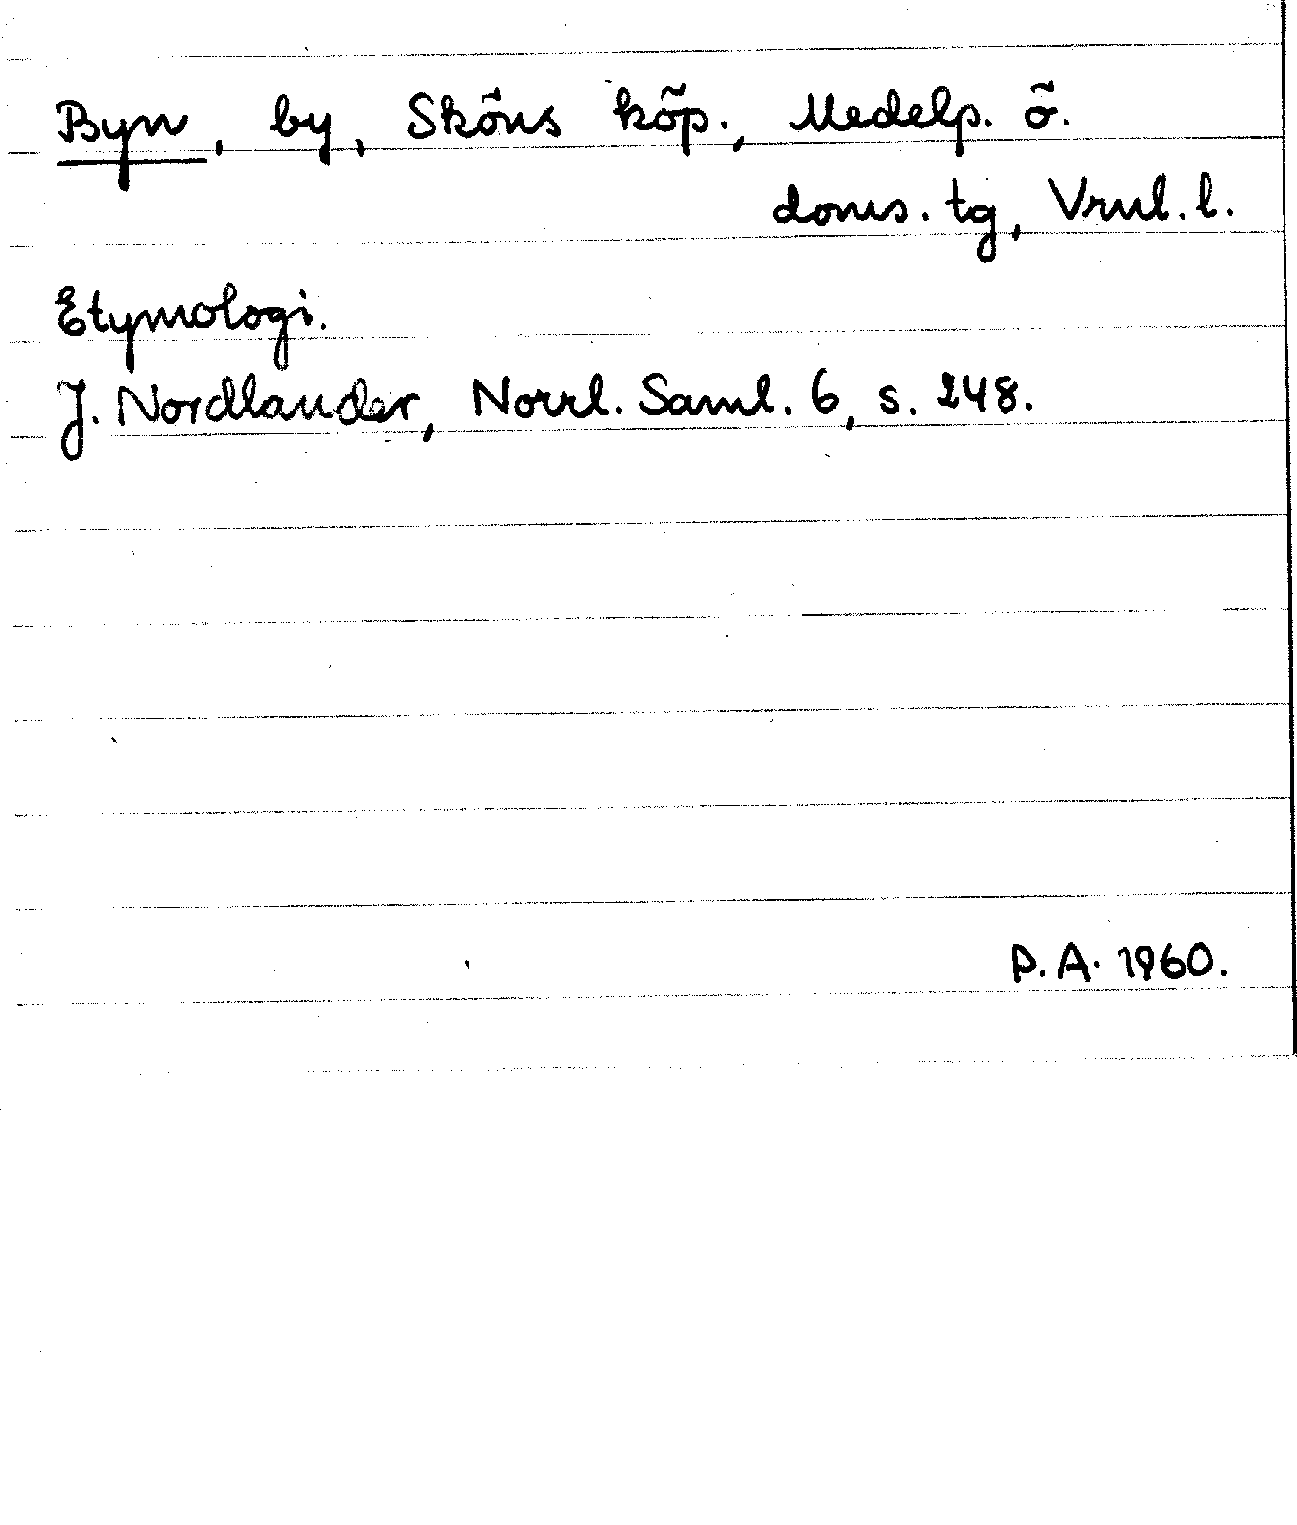 Byn, by, Sköns köp., Medelp. ö.
doms. tg, Vrnl. l.
Etymologi.
J. Nordlander, Norrl. Saml. 6, s. 248.
P. A. 1960.